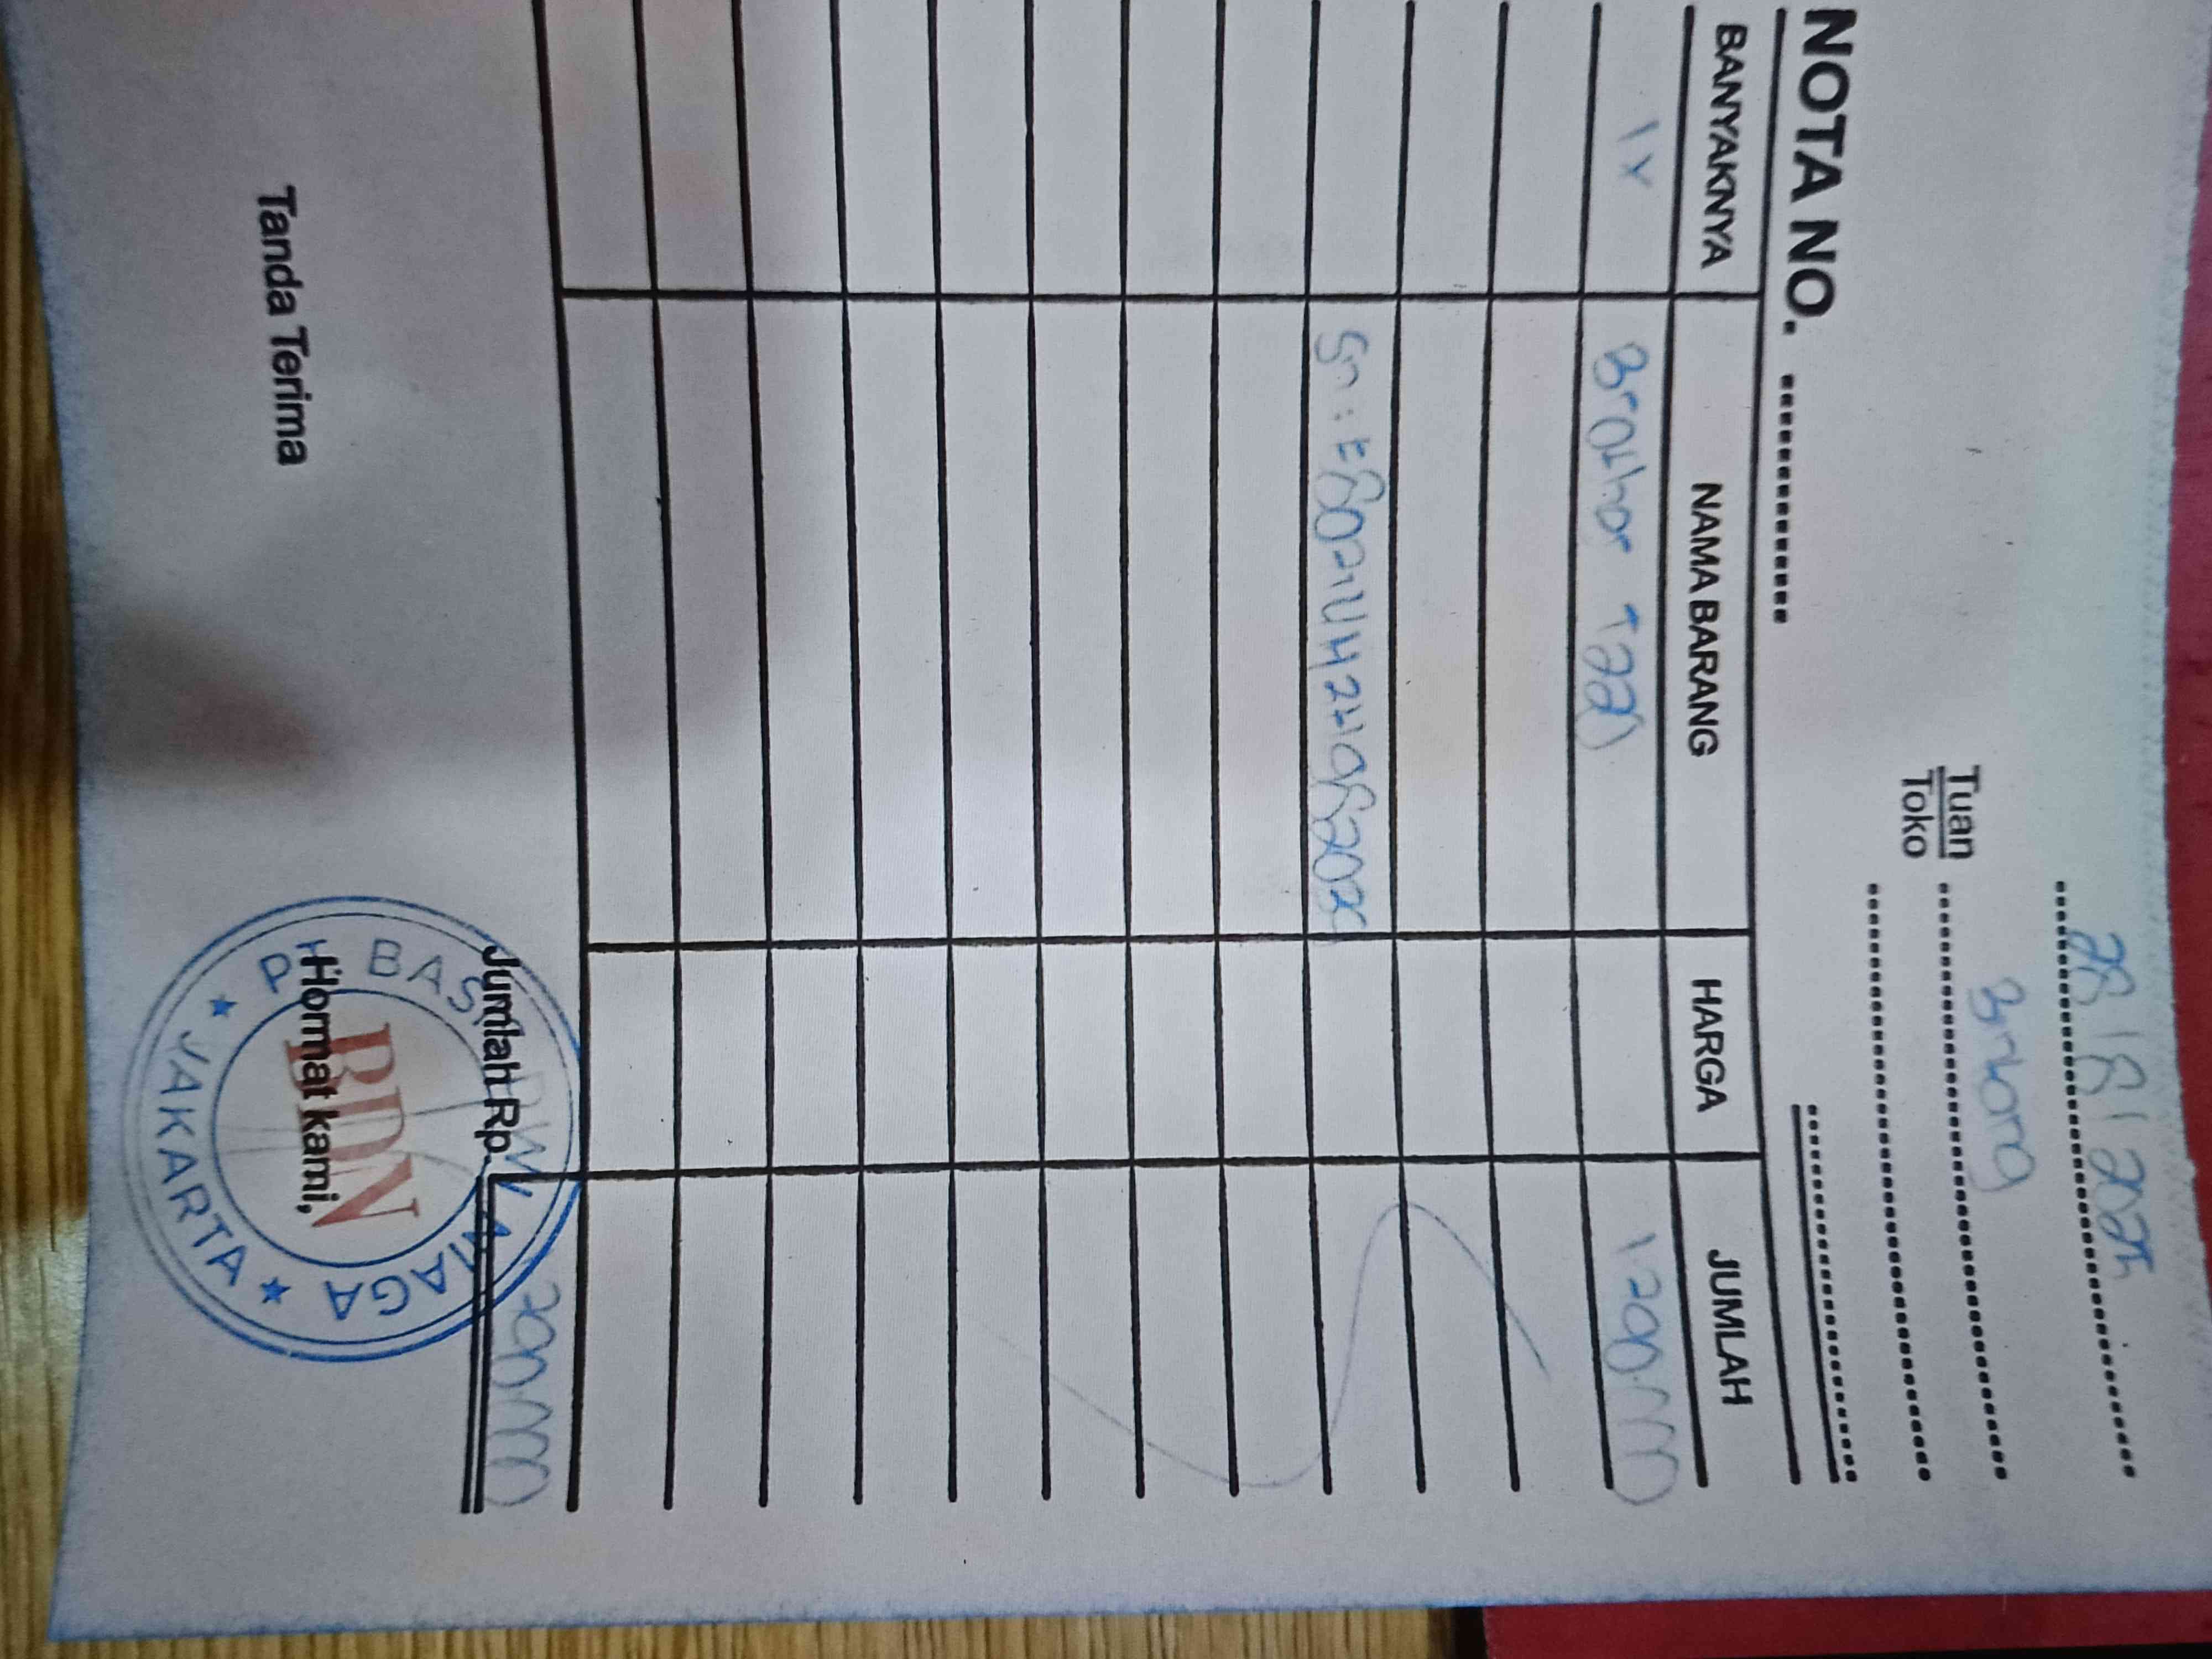 28/8/2025
Tuan Bintang
Toko
NOTA NO.
BANYAKNYA NAMA BARANG HARGA JUMLAH
1x Brother T220 1.200.000
Sn :
Jumlah Rp. 1.200.000
Tanda Terima Hormat kami,
BDN
NIAGA
★ JAKARTA ★